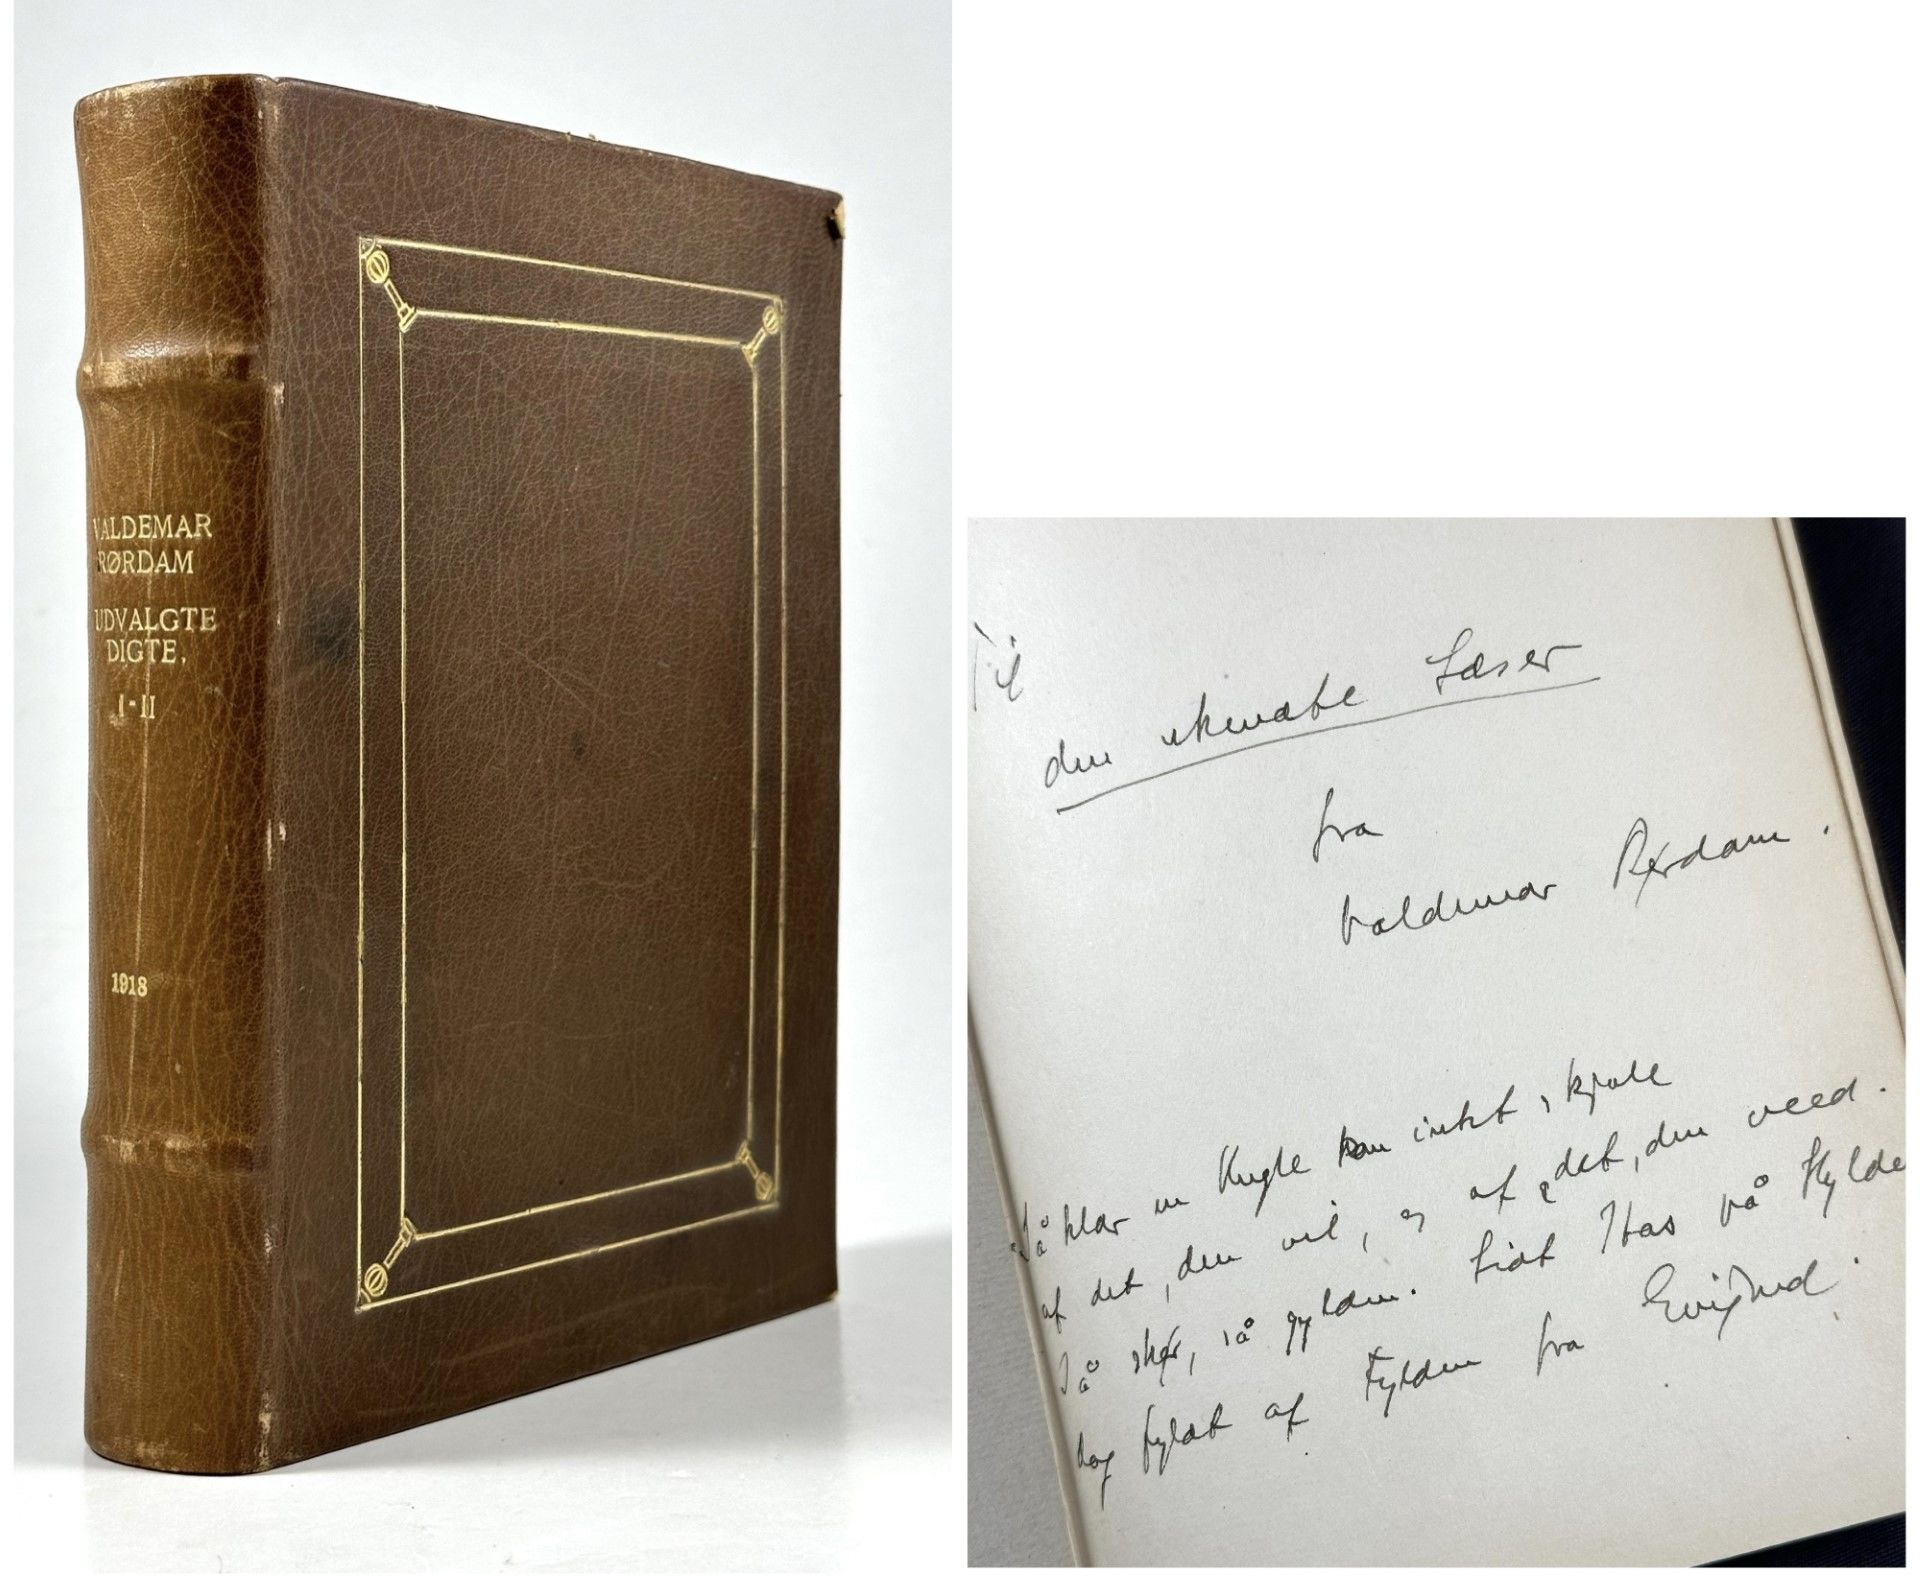 VALDEMAR
RØRDAM
UDVALGTE
DIGTE.
I-II
1918
Til
den ukendte Læser
fra
Valdemar Rørdam.
Så klar en Kugle kan intet skjule
af det, den vil, og af det, den veed.
Så skør, så gylden. Lidt Glas på Hylde
dog fyldt af Fylden fra Evighed.